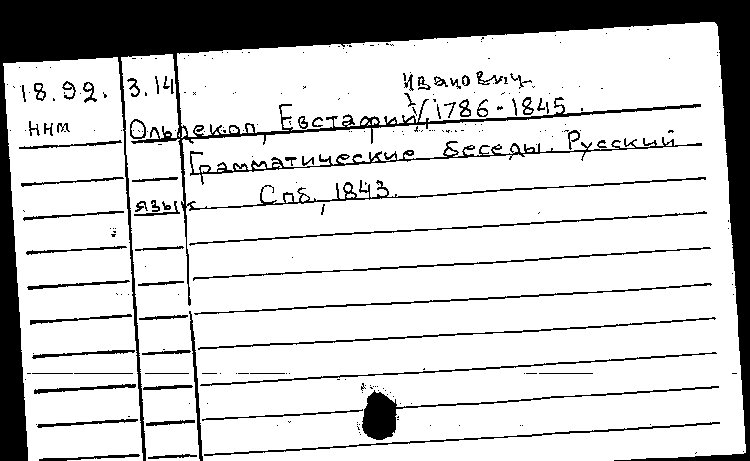 18.92. 3.14
Иванович
ннм Ольдекоп, Евстафий, 1786-1845.
Грамматические беседы. Русский
язык. Спб, 1843.